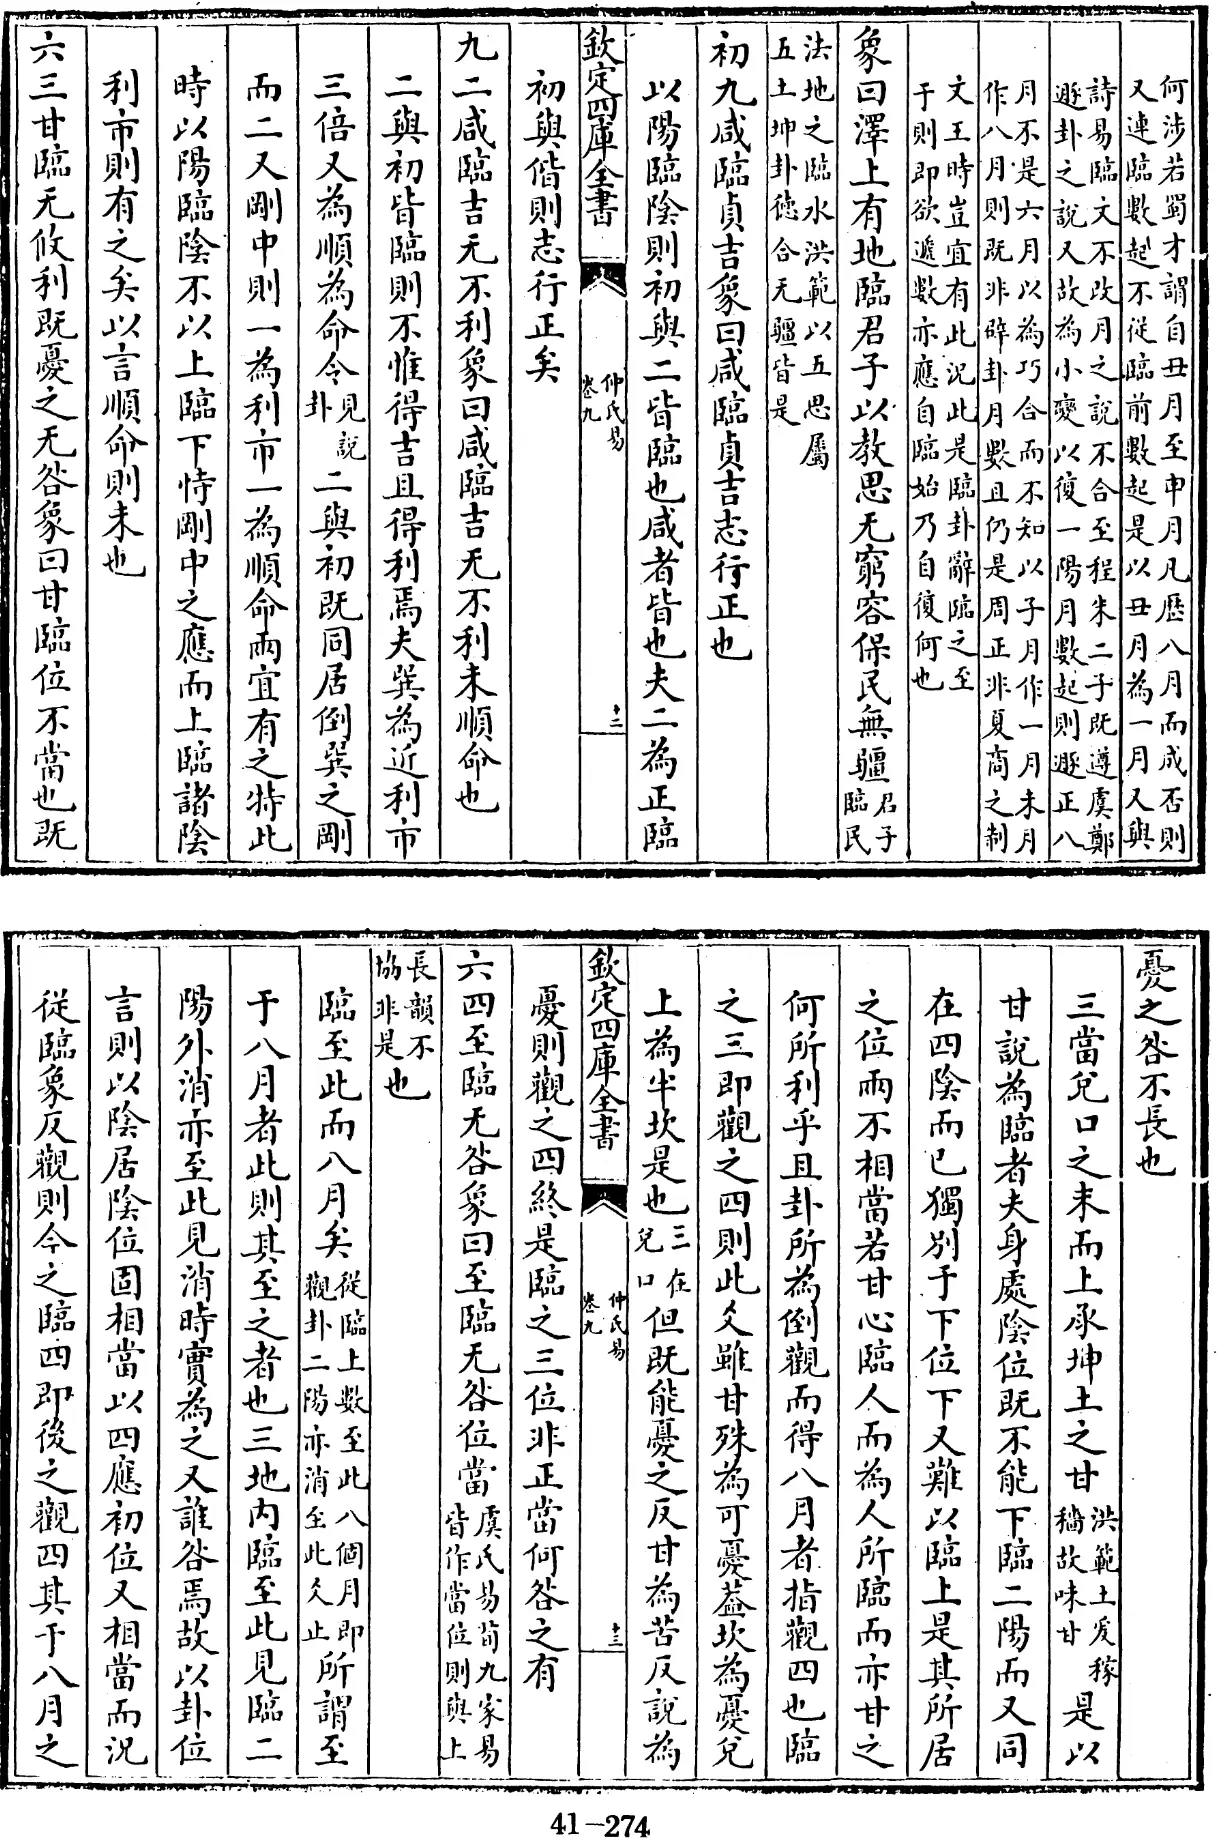 何涉若蜀才謂自丑月至申月凡歷八月而成否則
又連臨數起不從臨前數起是以丑月為一月又與
詩易臨文不改月之說不合至程朱二子既遵虞鄭
遯卦之說又故為小變以復一陽月數起則遯正八
月不是六月以為巧合而不知以子月作一月未月
作八月則既非辟卦月數且仍是周正非夏商之制
文王時豈宜有此況此是臨卦辭臨之至
于則即欲遞數亦應自臨始乃自復何也
象曰澤上有地臨君子以教思无窮容保民無疆君子
臨民
法地之臨水洪範以五思屬
五土坤卦德合无疆皆是
初九咸臨貞吉象曰咸臨貞吉志行正也
以陽臨陰則初與二皆臨也咸者皆也夫二為正臨
欽定四庫全書
仲氏易
卷九
十二
初與偕則志行正矣
九二咸臨吉无不利象曰咸臨吉无不利未順命也
二與初皆臨則不惟得吉且得利焉夫巽為近利市
三倍又為順為命令見說
卦二與初既同居倒巽之剛
而二又剛中則一為利市一為順命兩宜有之特此
時以陽臨陰不以上臨下恃剛中之應而上臨諸陰
利市則有之矣以言順命則未也
六三甘臨无攸利既憂之无咎象曰甘臨位不當也既
憂之咎不長也
三當兌口之末而上承坤土之甘洪範土爰稼
穡故味甘是以
甘說為臨者夫身處陰位既不能下臨二陽而又同
在四陰而已獨別于下位下又難以臨上是其所居
之位兩不相當若甘心臨人而為人所臨而亦甘之
何所利乎且卦所為倒觀而得八月者指觀四也臨
之三即觀之四則此爻雖甘殊為可憂葢坎為憂兌
上為半坎是也三在
兌口但既能憂之反甘為苦反說為
欽定四庫全書
仲氏易
卷九
十三
憂則觀之四終是臨之三位非正當何咎之有
六四至臨无咎象曰至臨无咎位當虞氏易荀九家易
皆作當位則與上
長韻不
協非是也
臨至此而八月矣從臨上數至此八個月即
觀卦二陽亦消至此爻止所謂至
于八月者此則其至之者也三地內臨至此見臨二
陽外消亦至此見消時實為之又誰咎焉故以卦位
言則以陰居陰位固相當以四應初位又相當而況
從臨象反觀則今之臨四即後之觀四其于八月之
41-274